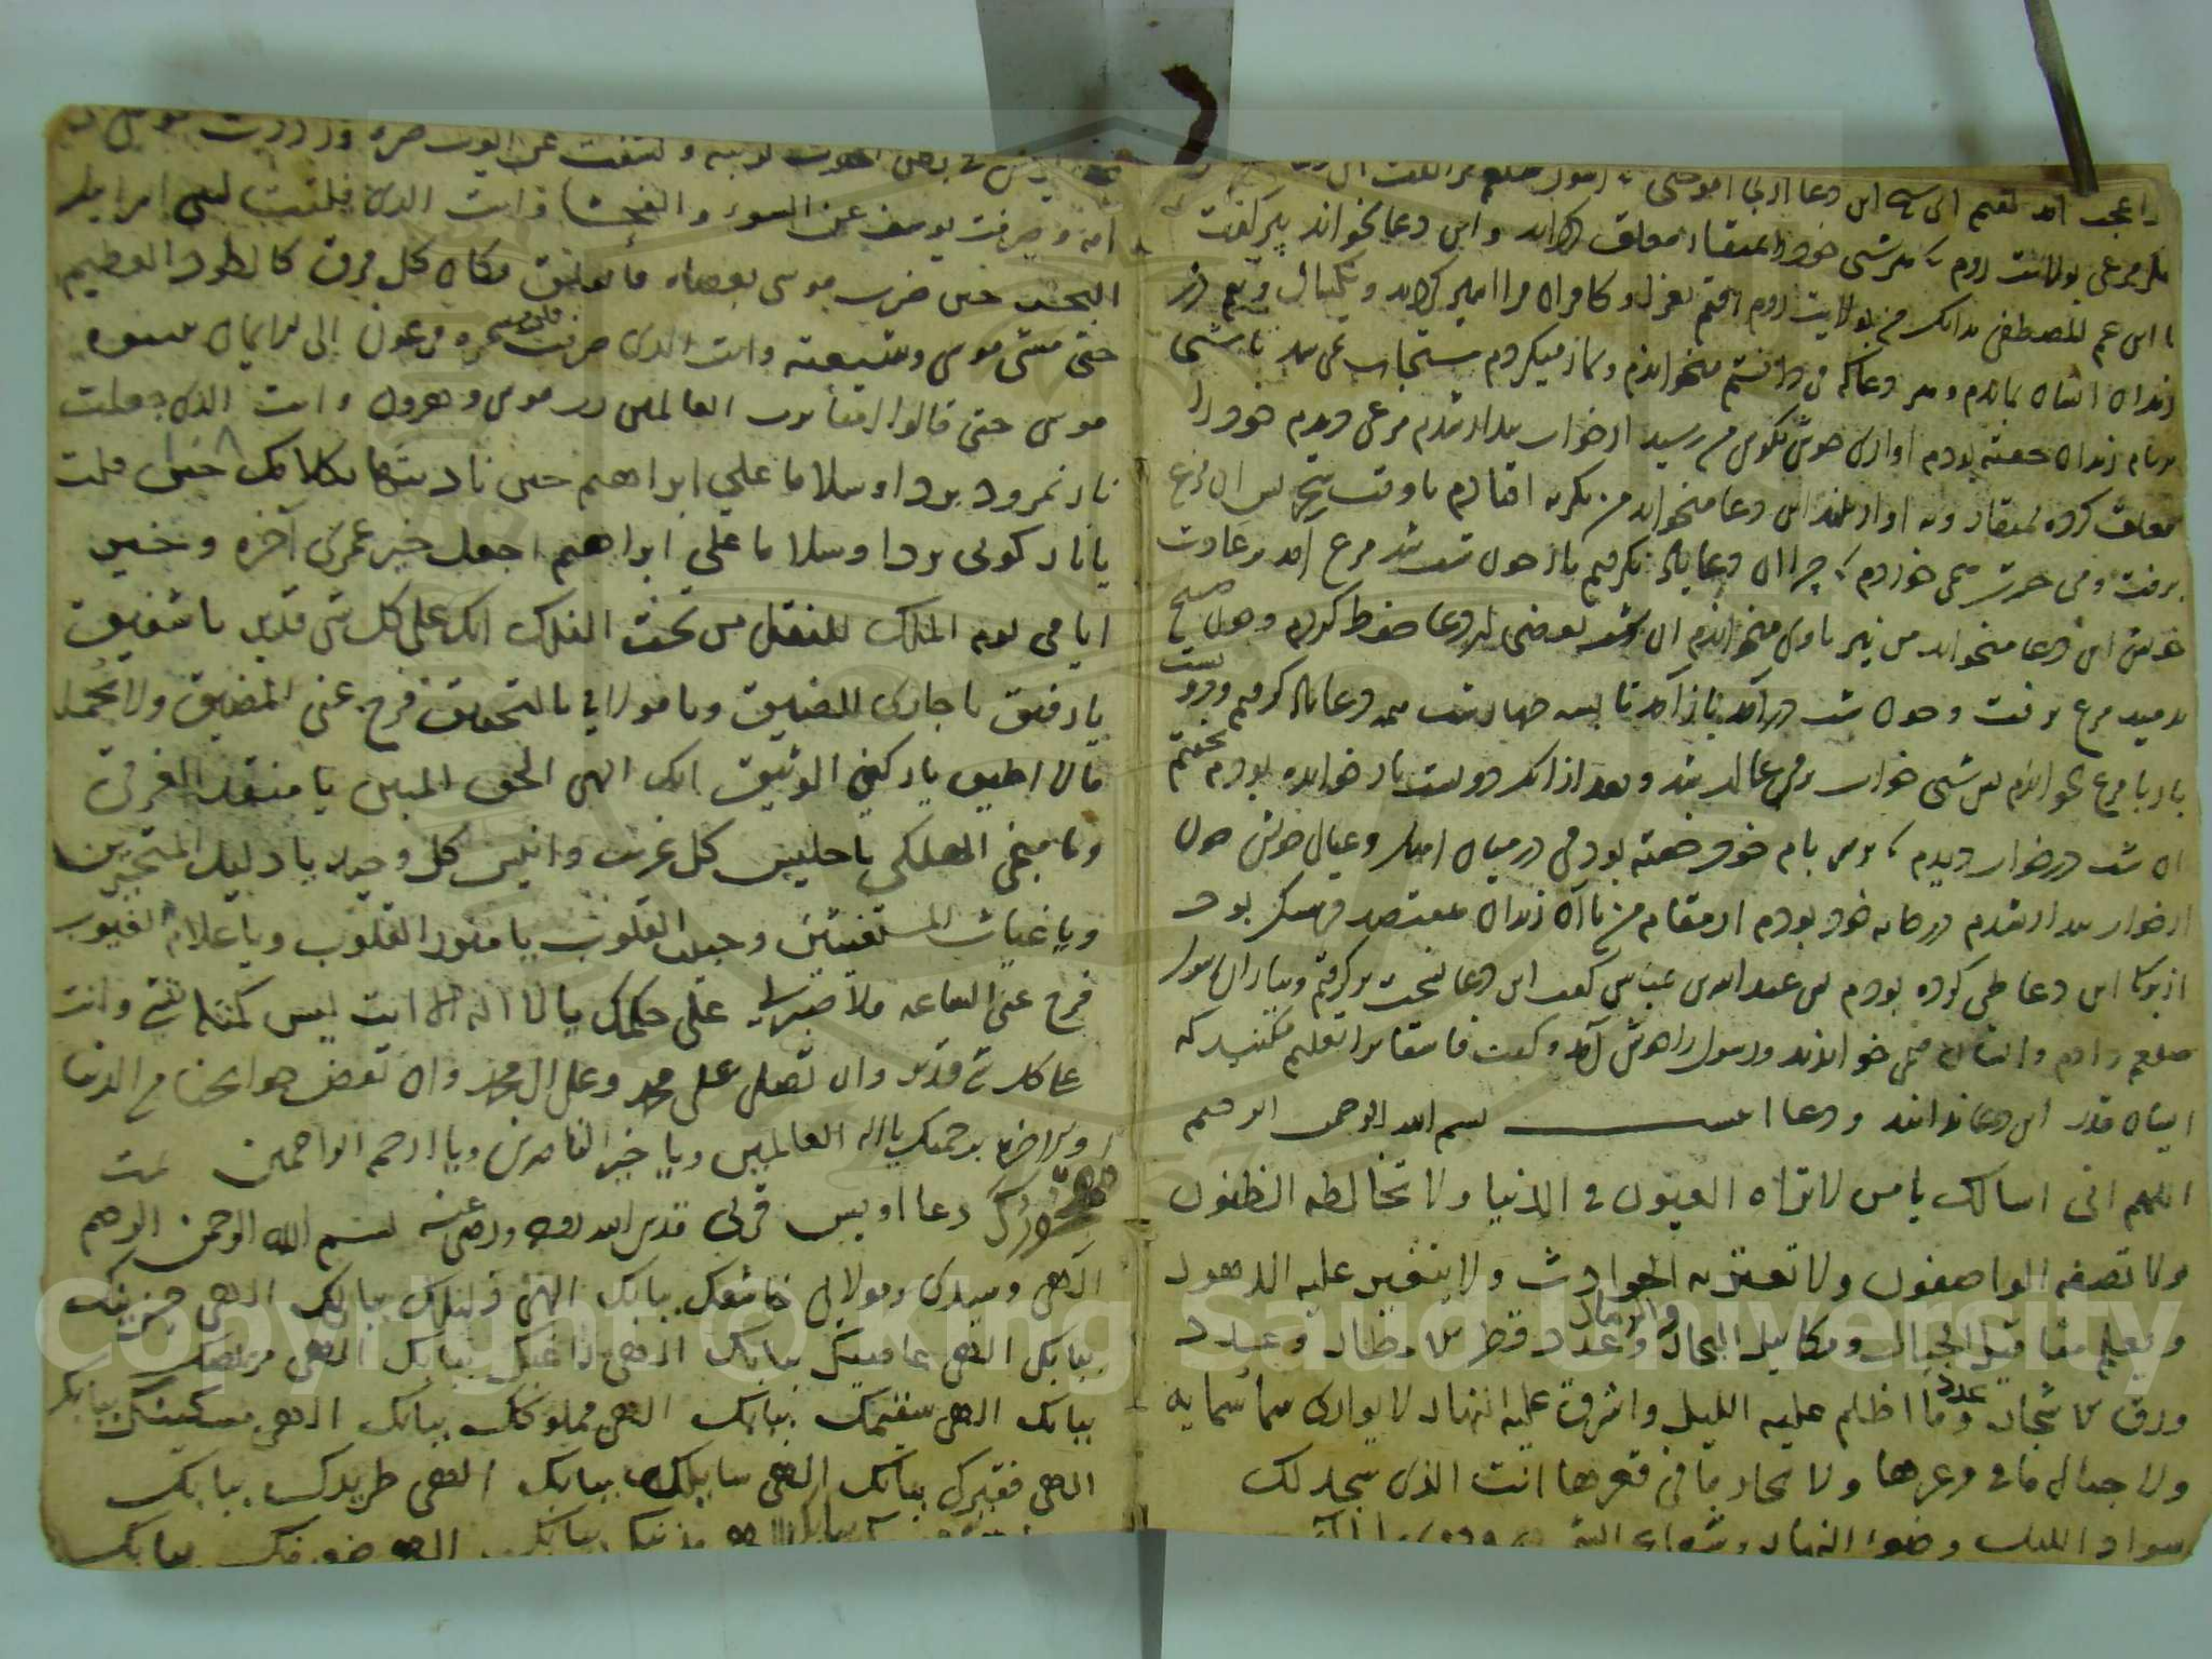 را عجب آمد گفتم ای این دعا از کجا آموختی
مگر مرغی بولایت روم که هر شبی خود را بمنقار معلق کرداند و این دعا بخواند پیر گفت
یا ابن عم المصطفی بدانکه من بولایت روم افتم بغزا و کافران مرا اسیر کردند و یکسال و نیم در
زندان ایشان بماندم و هر دعا که من دانستم میخواندم و نماز میکردم مستجاب نمی شد تا شبی
بر بام زندان خفته بودم آوازی خوش بگوش من رسید از خواب بیدار شدم مرغی دیدم خود را
معلق کرده بمنقار و به آواز بلند این دعا میخواند من بگریه افتادم تا وقت صبح پس آن مرغ
برفت و من حسرت می خوردم که چرا این دعا یاد نگرفتم باز چون شب شد مرغ آمد بر عادت
خویش این دعا میخواند من نیز با وی میخواندم آن شب بعضی از دعا حفظ کردم و چون صبح
بدمید مرغ برفت و چون شب درآمد باز آمد تا بسه چهار شب همه دعا یاد گرفتم و دویست
بار با مرغ بخواندم پس شبی خواب بر من غالب شد و بعد از آنکه دویست بار خوانده بودم بخفتم
آن شب در خواب دیدم که بر بام خود خفته بودمی در میان اهل و عیال خویش چون
از خواب بیدار شدم در خانه خود بودم از مقام من تا آن زندان سیصد فرسنگ بود
از برکات این دعا طی کرده بودم پس عبد الله بن عباس گفت این دعا نسخت برگرفتم و بیاران رسول
صلعم دادم و ایشان می خواندند و رسول را خوش آمد و گفت فاسقانرا تعلیم مکنید که
ایشان قدر این دعا ندانند و دعا اینست بسم الله الرحمن الرحیم
اللهم انی اسالک یا من لا تراه العیون فی الدنیا ولا تخالطه الظنون
ولا تصفه الواصفون ولا تعتریه الحوادث ولا یتغیر علیه الدهور
و یعلم مثاقیل الجبال و مکاییل البحار والرمال و عدد قطر الامطار و عدد
ورق الاشجار و عدد ما اظلم علیه اللیل و اشرق علیه النهار لا یواری سما سمایه
ولا جبال ما فی وعرها ولا بحار ما فی قعرها انت الذی سجد لک
سواد اللیل و ضوء النهار و شعاع الشمس
امه و صرفت یوسف عن السوء و الفحشا و انت الذی فلقت لبنی اسرایل
البحر حین ضرب موسی بعصاه فانفلق فکان کل فرق کالطود العظیم
حتی مشی موسی و شیعته و انت الذی صرفت قلوب سحره فرعون الی الایمان بنبوه
موسی حتی قالوا امنا برب العالمین رب موسی و هرون و انت الذی جعلت
نار نمرود بردا و سلاما علی ابراهیم حین نادیتها بکلامک حین قلت
یا نار کونی بردا و سلاما علی ابراهیم اجعل خیر عمری آخره و خیر
ایامی یوم الملک انک علی کل شی قدیر یا شفیق
یا رفیق یا جاری اللصیق و یا مولای بالتحقیق فرج عنی المضیق ولا تحمله
مالا اطیق یا رکنی الوثیق انک الهی الحق المبین یا منقذ الغرقی
و یا منجی الهلکی یا جلیس کل غریب و انیس کل وحید یا دلیل المتحیرین
و یا غیاث المستغیثین و حبیب القلوب یا منور القلوب و یا علام الغیوب
فرج عنی الساعه فلا صبر لی علی حلمک یا لا اله الا انت لیس کمثله شی و انت
علی کل شی قدیر و ان تصلی علی محمد و علی آل محمد و ان تقضی حوایجنا من الدنیا
و الاخره برحمتک یا اله العالمین و یا خیر الناصرین و یا ارحم الراحمین تمت
دعا اویس قرنی قدس الله روحه و رضی عنه بسم الله الرحمن الرحیم
الهی و سیدی و مولای خاشعک ببابک الهی ذلیلک ببابک الهی حزینک
ببابک الهی عاصیک ببابک الهی راغبک ببابک الهی مریضک
ببابک الهی سقیمک ببابک الهی مملوکک ببابک الهی مسکینک ببابک
الهی فقیرک ببابک الهی سایلک ببابک الهی طریدک ببابک
ببابک الهی مذنبک ببابک الهی ضعیفک ببابک
Copyright © King Saud University